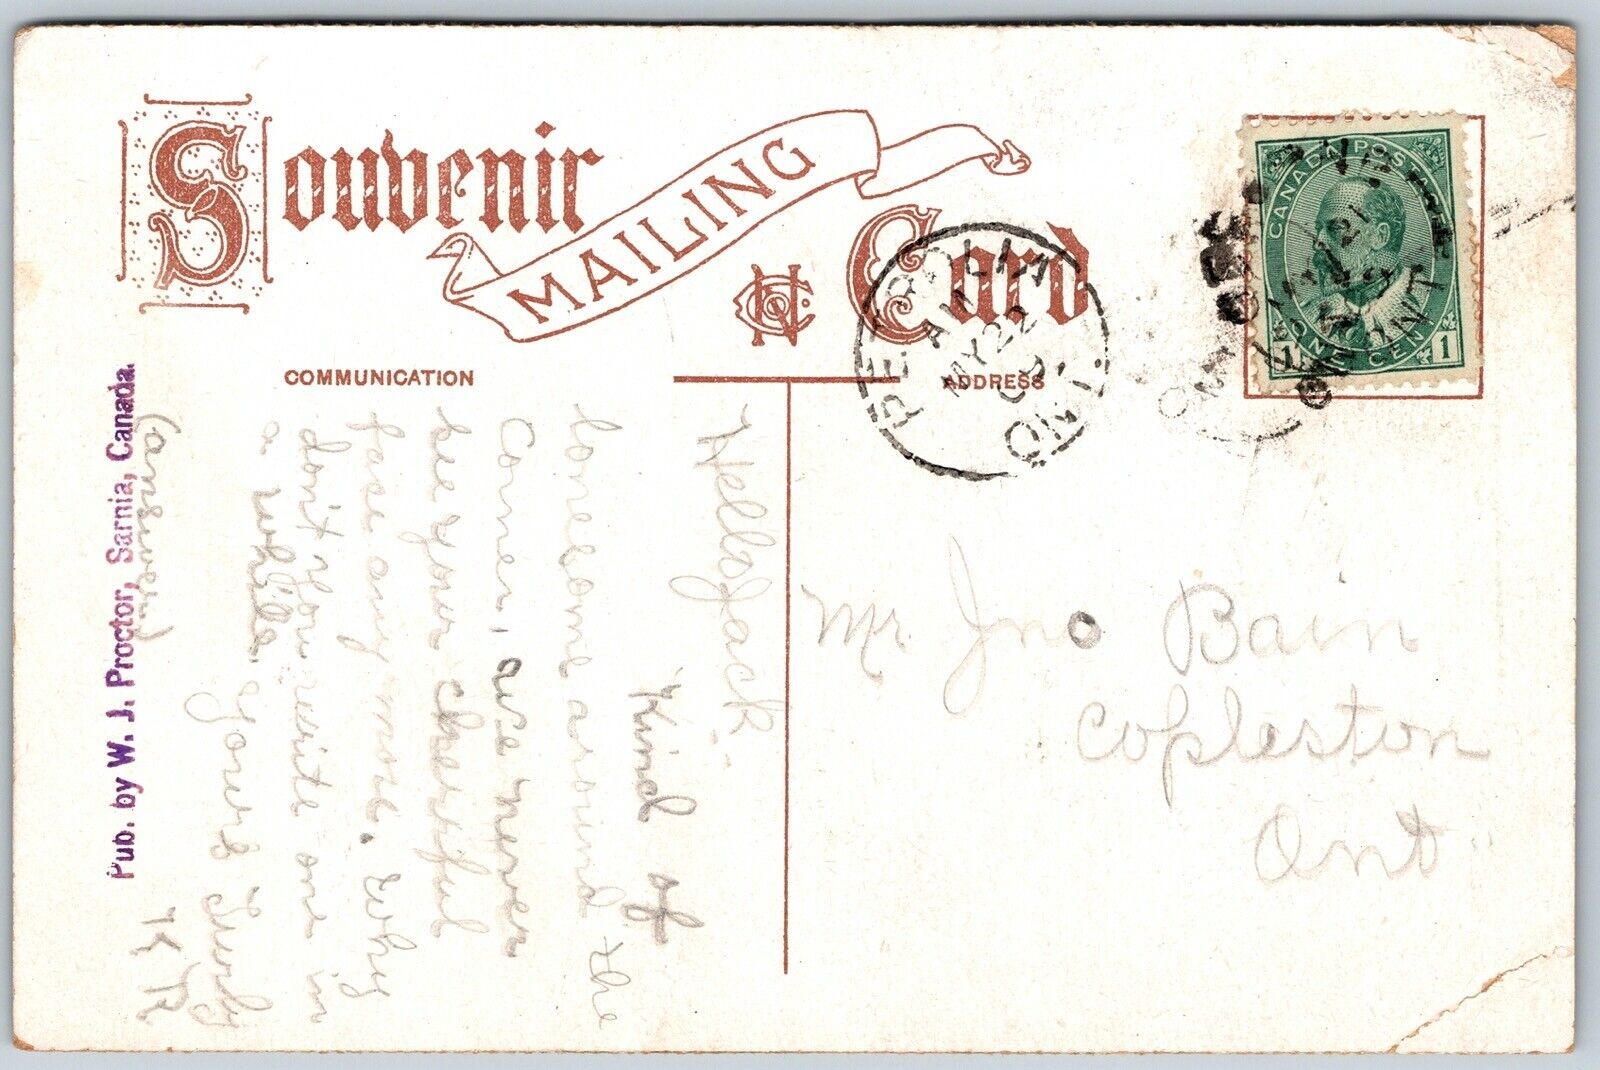 Souvenir
MAILING
Card
COMMUNICATION
ADDRESS
CANADA POSTAGE
1 ONE CENT 1
PETROLIA
AM
MY 22
ONT.
Pub. by W. J. Proctor, Sarnia, Canada.
Hello Jack
Kind of
lonesome around the
Corner, we never
see your cheerful
face any more. Why
don't you write one in
a while.
yours Truly
K R
(answer)
Mr. Jno Bain
Copleston
Ont